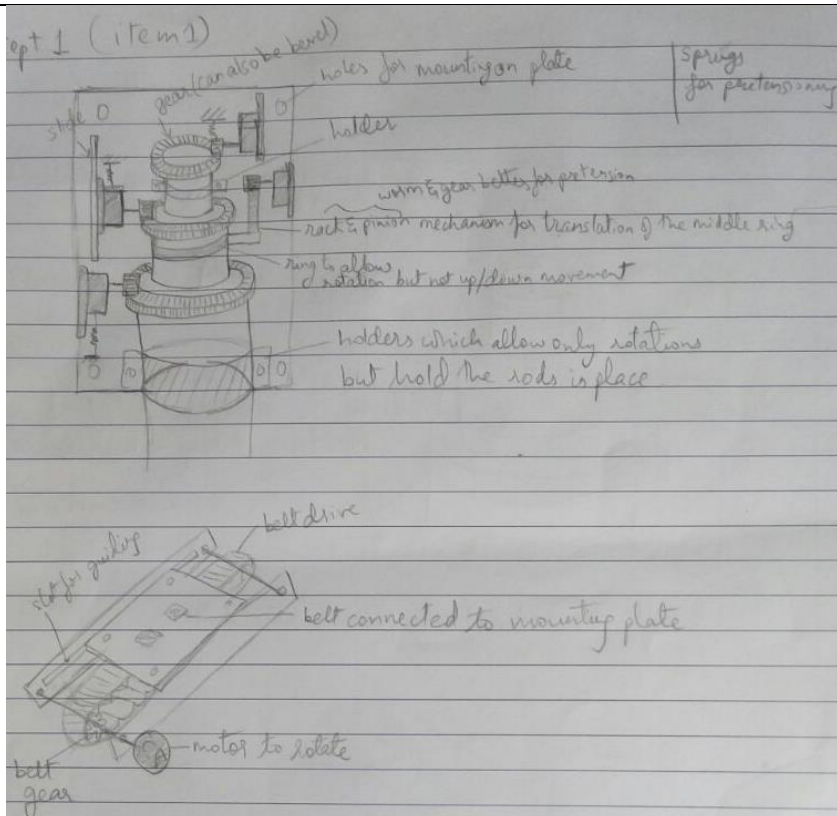 ept 1 (item 1)
gear (can also be bevel)
holes for mounting on plate
sprigs
for pretensioning
slide
holder
worm & gear better for pretension
rack & pinion mechanism for translation of the middle ring
ring to allow
rotation but not up/down movement
holders which allow only rotations
but hold the rods in place
belt drive
slot for guiding
belt connected to mounting plate
motor to rotate
belt
gear